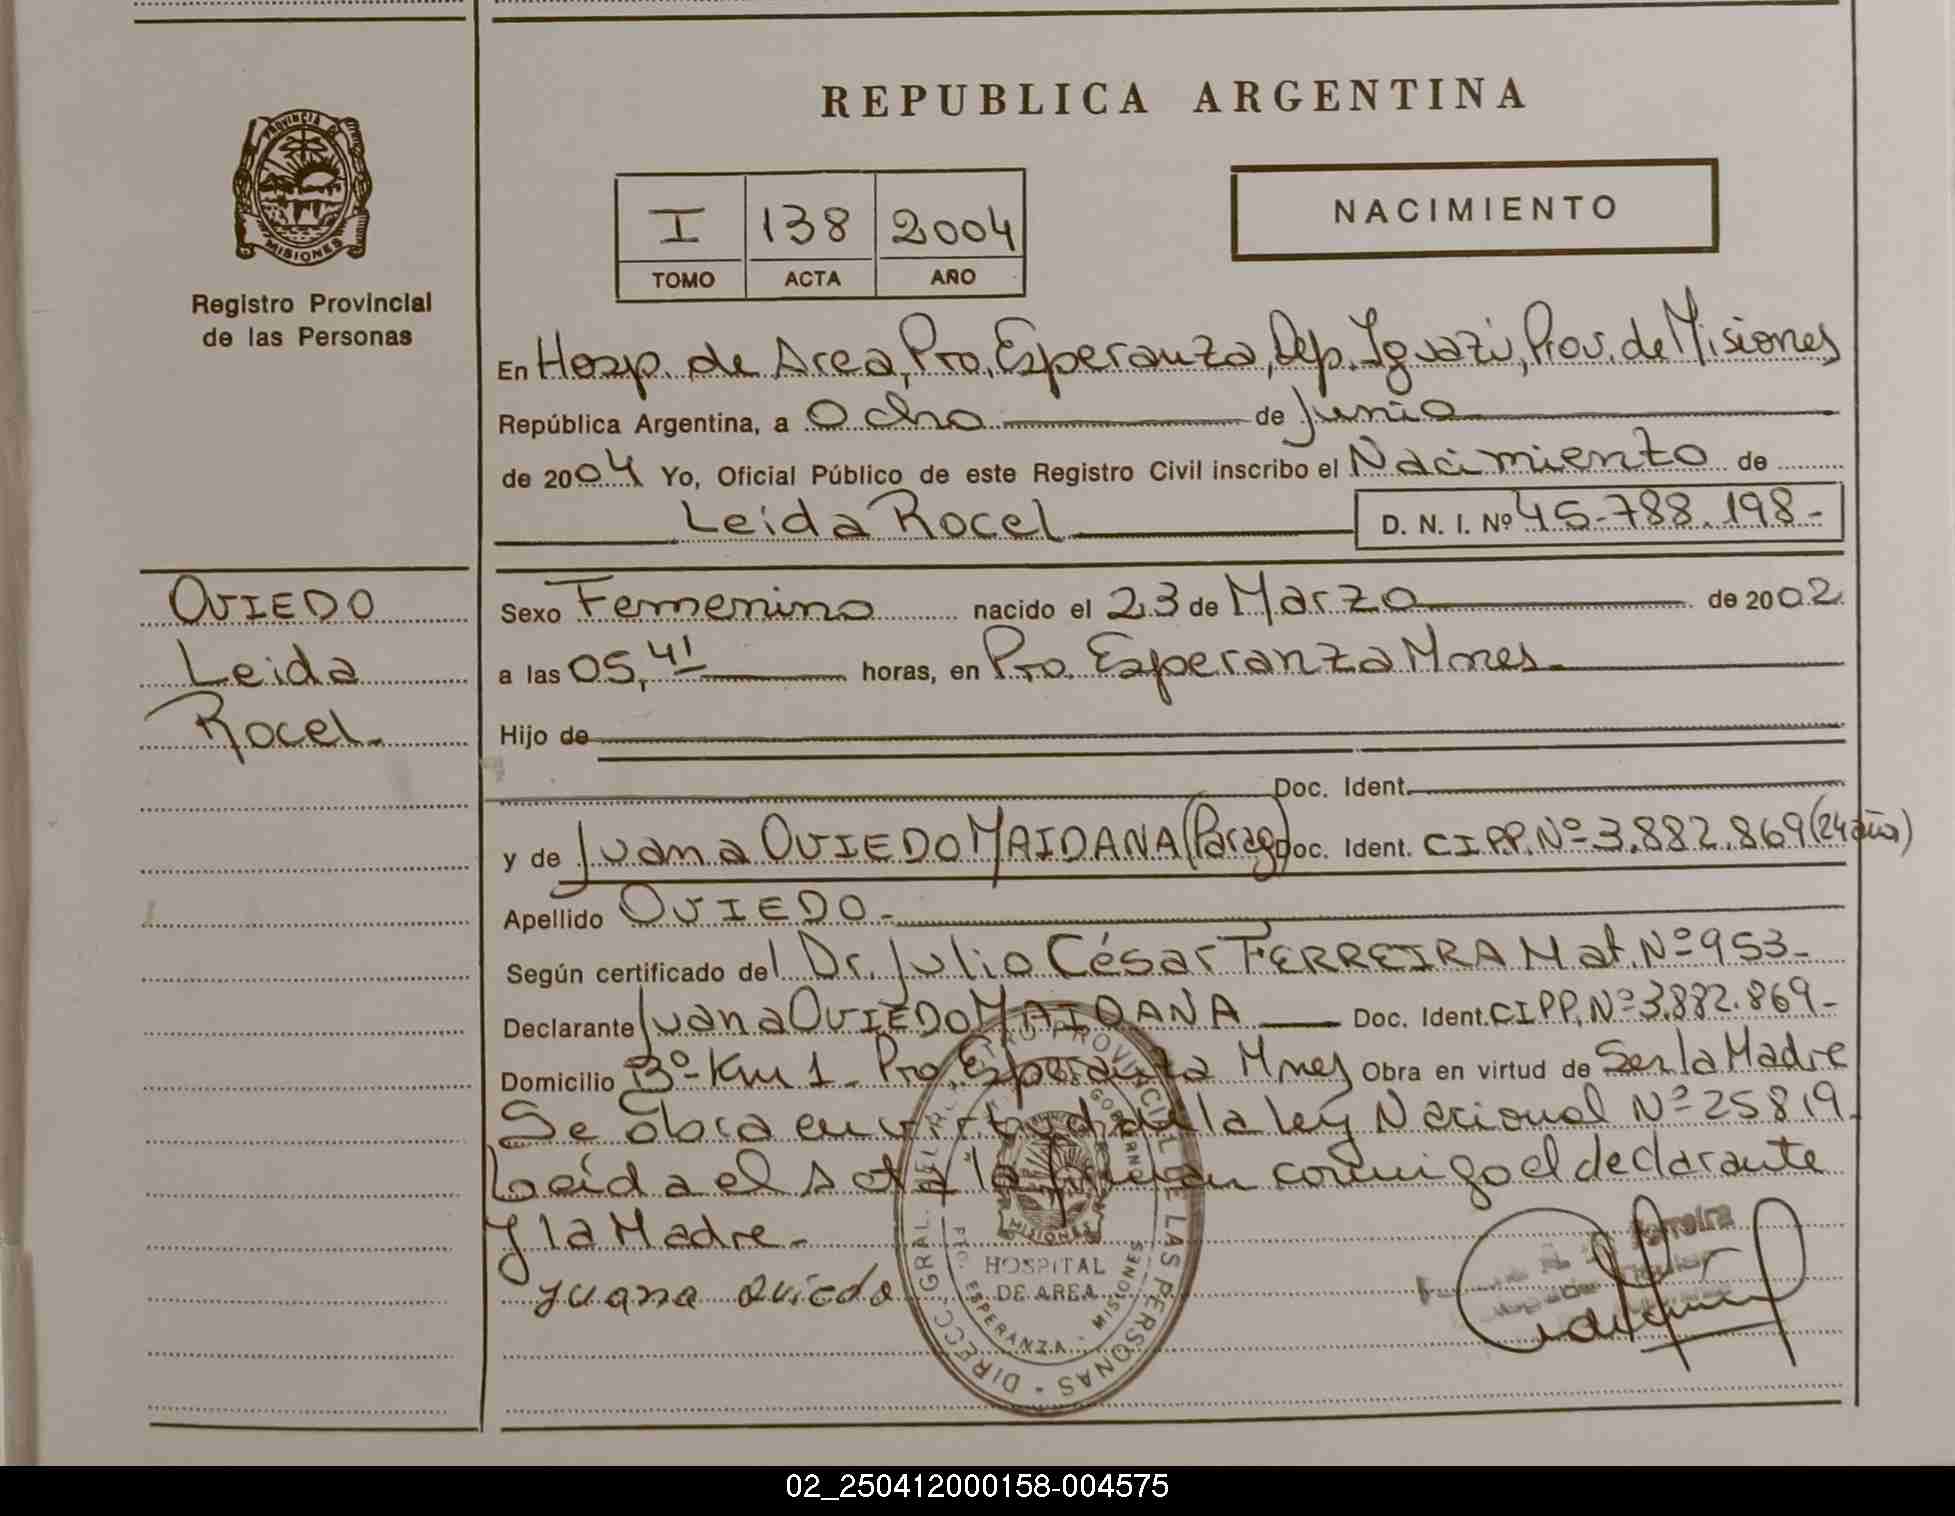 REPUBLICA ARGENTINA
PROVINCIA DE
MISIONES
Registro Provincial
de las Personas
I 138 2004
TOMO ACTA AÑO
NACIMIENTO
En Hosp. de Area, Pto. Esperanza, Dep. Iguazú, Prov. de Misiones
República Argentina, a Ocho de Junio
de 2004 Yo, Oficial Público de este Registro Civil inscribo el Nacimiento de
Leida Rocel D. N. I. Nº 45.788.198-
OVIEDO
Leida
Rocel.
Sexo Femenino nacido el 23 de Marzo de 2002
a las 05,41 horas, en Pto. Esperanza Mnes.
Hijo de
Doc. Ident.
y de Juana OVIEDO MAIDANA (Parag) Doc. Ident. CIPP. Nº 3.882.869 (24 años)
Apellido OVIEDO.
Según certificado del Dr. Julio César FERREIRA Mat. Nº 953-
Declarante Juana OVIEDO MAIDANA Doc. Ident. CIPP. Nº 3.882.869-
Domicilio Bº Km 1 - Pto. Esperanza Mnes Obra en virtud de Ser la Madre
Se obra en virtud de la ley Nacional Nº 25819.
Leída el Acta la firman conmigo el declarante
y la Madre.-
Juana Oviedo
DIRECC. GRAL. DEL REGISTRO PROVINCIAL DE LAS PERSONAS
GOBIERNO
MISIONES
HOSPITAL
DE AREA
PTO. ESPERANZA - MISIONES
Ferreira
02_250412000158-004575